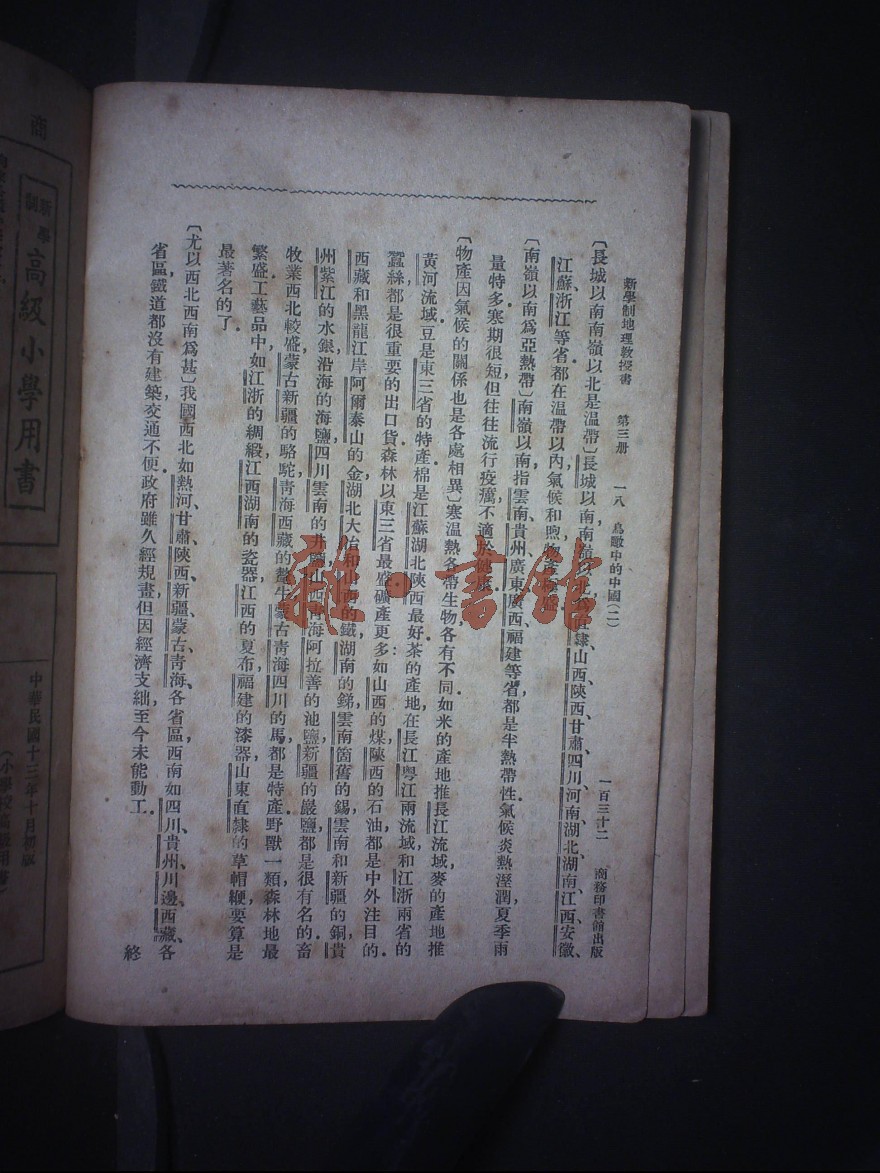 新學制地理教授書　第三册　一八　鳥瞰中的中國(二)　一百三十二　商務印書館出版
〔長城以南南嶺以北是溫帶〕長城以南,南嶺以北,直隸、山西、陝西、甘肅、四川、河南、湖北、湖南、江西、安徽、
江蘇、浙江等省都在溫帶以內氣候和煦物產
〔南嶺以南爲亞熱帶〕南嶺以南,指雲南、貴州、廣東、廣西、福建等省,都是半熱帶性,氣候炎熱溼潤,夏季雨
量特多,寒期很短,但往往流行疫癘,不適於健康.
〔物產因氣候的關係也是各處相異〕寒溫熱各帶,生物各有不同.如米的產地推長江流域,麥的產地推
黃河流域,豆是東三省的特產,棉是江蘇湖北陝西最好,茶的產地在長江粵江兩流域和江浙兩省的
蠶絲,都是很重要的出口貨.森林以東三省最盛.礦產更多:如山西的煤,陝西的石油,都是中外注目的.
西藏和黑龍江岸阿爾泰山的金,湖北大冶和山西的鐵,湖南的銻,雲南箇舊的錫,雲南和新疆的銅,貴
州紫江的水銀,沿海的海鹽,四川雲南的井鹽,山西青海阿拉善的池鹽,新疆的巖鹽,都是很有名的.畜
牧業西北較盛,蒙古新疆的駱駝,青海西藏的犛牛,蒙古青海四川的馬,都是特產.野獸一類,森林地最
繁盛.工藝品中如江浙的綢緞,江西湖南的瓷器,江西的夏布,福建的漆器,山東直隸的草帽鞭,要算是
最著名的了.
〔尤以西北西南爲甚〕我國西北如熱河、甘肅、陝西、新疆、蒙古、青海、各省區,西南如四川、貴州、川邊、西藏、各
省區,鐵道都沒有建築,交通不便.政府雖久經規畫,但因經濟支絀,至今未能動工.
終
商
新學制
高級小學用書
中華民國十三年十月初版
雜·書館